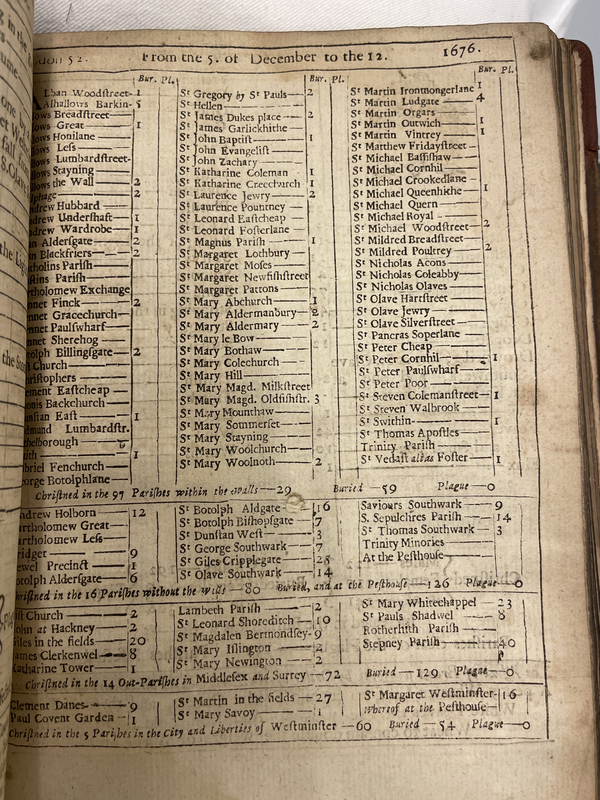 From the 5. of December to the 12. 1676.
Bur. Pl.
lban Woodſtreet- 1
Alhallows Barkin- 5
lows Breadſtreet—
lows Great— 1
lows Honilane
lows Leſs
lows Lumbardſtreet-
lows Stayning
lows the Wall 2
lphage 2
ndrew Hubbard
ndrew Underſhaft— 1
ndrew Wardrobe— 1
Alderſgate— 2
Blackfriers— 2
tholins Pariſh
Pariſh
rtholomew Exchange
nnet Finck— 2
nnet Gracechurch—
nnet Paulſwharf—
nnet Sherehog
tolph Billingſgate— 2
t Church
riſtophers
ement Eaſtcheap
Backchurch
nſtan Eaſt— 1
dmund Lumbardſtr.
thelborough
ith— 1
briel Fenchurch
orge Botolphlane
Bur. Pl.
Sᵗ Gregory by Sᵗ Pauls— 2
Sᵗ Hellen
Sᵗ James Dukes place— 2
Sᵗ James Garlickhithe
Sᵗ John Baptiſt— 1
Sᵗ John Evangeliſt
Sᵗ John Zachary
Sᵗ Katharine Coleman 1
Sᵗ Katharine Creechurch 1
Sᵗ Laurence Jewry— 2
Sᵗ Laurence Pountney
Sᵗ Leonard Eaſtcheap
Sᵗ Leonard Foſterlane
Sᵗ Magnus Pariſh 1
Sᵗ Margaret Lothbury
Sᵗ Margaret Moſes
Sᵗ Margaret Newfiſhſtreet
Sᵗ Margaret Pattons
Sᵗ Mary Abchurch 1
Sᵗ Mary Aldermanbury— 2
Sᵗ Mary Aldermary— 2
Sᵗ Mary le Bow
Sᵗ Mary Bothaw
Sᵗ Mary Colechurch
Sᵗ Mary Hill
Sᵗ Mary Magd. Milkſtreet
Sᵗ Mary Magd. Oldfiſhſtr. 3
Sᵗ Mary Mounthaw
Sᵗ Mary Sommerſet
Sᵗ Mary Stayning
Sᵗ Mary Woolchurch
Sᵗ Mary Woolnoth— 2
Bur. Pl.
Sᵗ Martin Ironmongerlane 1
Sᵗ Martin Ludgate— 4
Sᵗ Martin Orgars
Sᵗ Martin Outwich— 1
Sᵗ Martin Vintrey 1
Sᵗ Matthew Fridayſtreet
Sᵗ Michael Baſſiſhaw—
Sᵗ Michael Cornhil—
Sᵗ Michael Crookedlane
Sᵗ Michael Queenhithe 1
Sᵗ Michael Quern
Sᵗ Michael Royal
Sᵗ Michael Woodſtreet— 2
Sᵗ Mildred Breadſtreet
Sᵗ Mildred Poultrey 2
Sᵗ Nicholas Acons
Sᵗ Nicholas Coleabby
Sᵗ Nicholas Olaves
Sᵗ Olave Hartſtreet
Sᵗ Olave Jewry
Sᵗ Olave Silverſtreet
Sᵗ Pancras Soperlane
Sᵗ Peter Cheap
Sᵗ Peter Cornhil— 1
Sᵗ Peter Paulſwharf
Sᵗ Peter Poor
Sᵗ Steven Colemanſtreet— 1
Sᵗ Steven Walbrook
Sᵗ Swithin— 1
Sᵗ Thomas Apoſtles
Trinity Pariſh
Sᵗ Vedaſt alias Foſter 1
Chriſtned in the 97 Pariſhes within the Walls—29 Buried—59 Plague—0
ndrew Holborn 12
rtholomew Great—
artholomew Leſs
ridget— 9
ewel Precinct 1
otolph Alderſgate 6
Sᵗ Botolph Aldgate 16
Sᵗ Botolph Biſhopſgate 7
Sᵗ Dunſtan Weſt— 3
Sᵗ George Southwark— 7
Sᵗ Giles Cripplegate
Sᵗ Olave Southwark— 14
Saviours Southwark— 9
S. Sepulchres Pariſh— 14
Sᵗ Thomas Southwark— 3
Trinity Minories
At the Peſthouſe—
hriſtned in the 16 Pariſhes without the Walls—80 Buried, and at the Peſthouſe—126 Plague—0
Church— 2
ohn at Hackney— 2
iles in the fields— 20
ames Clerkenwel— 8
Katharine Tower— 1
Lambeth Pariſh— 2
Sᵗ Leonard Shoreditch— 10
Sᵗ Magdalen Bermondſey- 9
Sᵗ Mary Iſlington 2
Sᵗ Mary Newington 2
Sᵗ Mary Whitechappel— 23
Sᵗ Pauls Shadwel 8
Rotherhith Pariſh
Stepney Pariſh— 40
Chriſtned in the 14 Out-Pariſhes in Middleſex and Surrey—72 Buried—129 Plague—0
Clement Danes— 9
Paul Covent Garden— 1
Sᵗ Martin in the fields— 27
Sᵗ Mary Savoy— 1
Sᵗ Margaret Weſtminſter- 16
Whereof at the Peſthouſe—
Chriſtned in the 5 Pariſhes in the City and Liberties of Weſtminſter—60 Buried—54 Plague—0